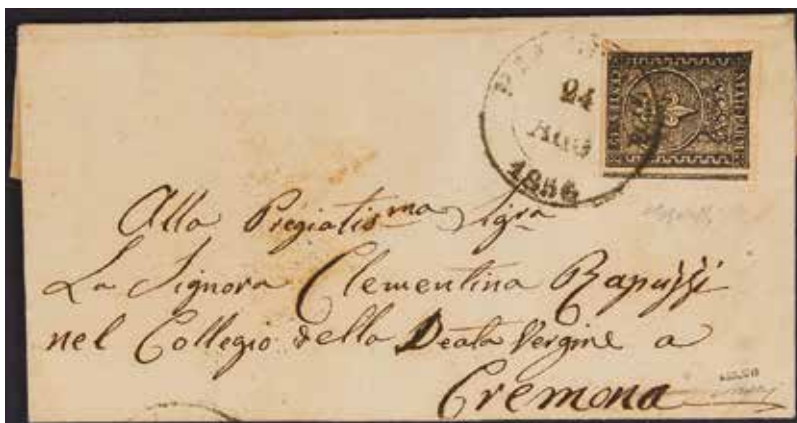 24
AGO
1856
STATI PARM.
CENTES. 15
Alla Pregiatis.ma Sig.ra
La Signora Clementina Rapuzzi
nel Collegio della Beata Vergine a
Cremona